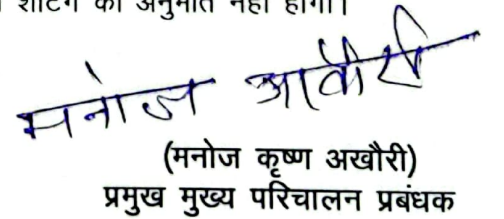 शंटिंग की अनुमति नहीं होगी।
मनोज अखौरी
(मनोज कृष्ण अखौरी)
प्रमुख मुख्य परिचालन प्रबंधक